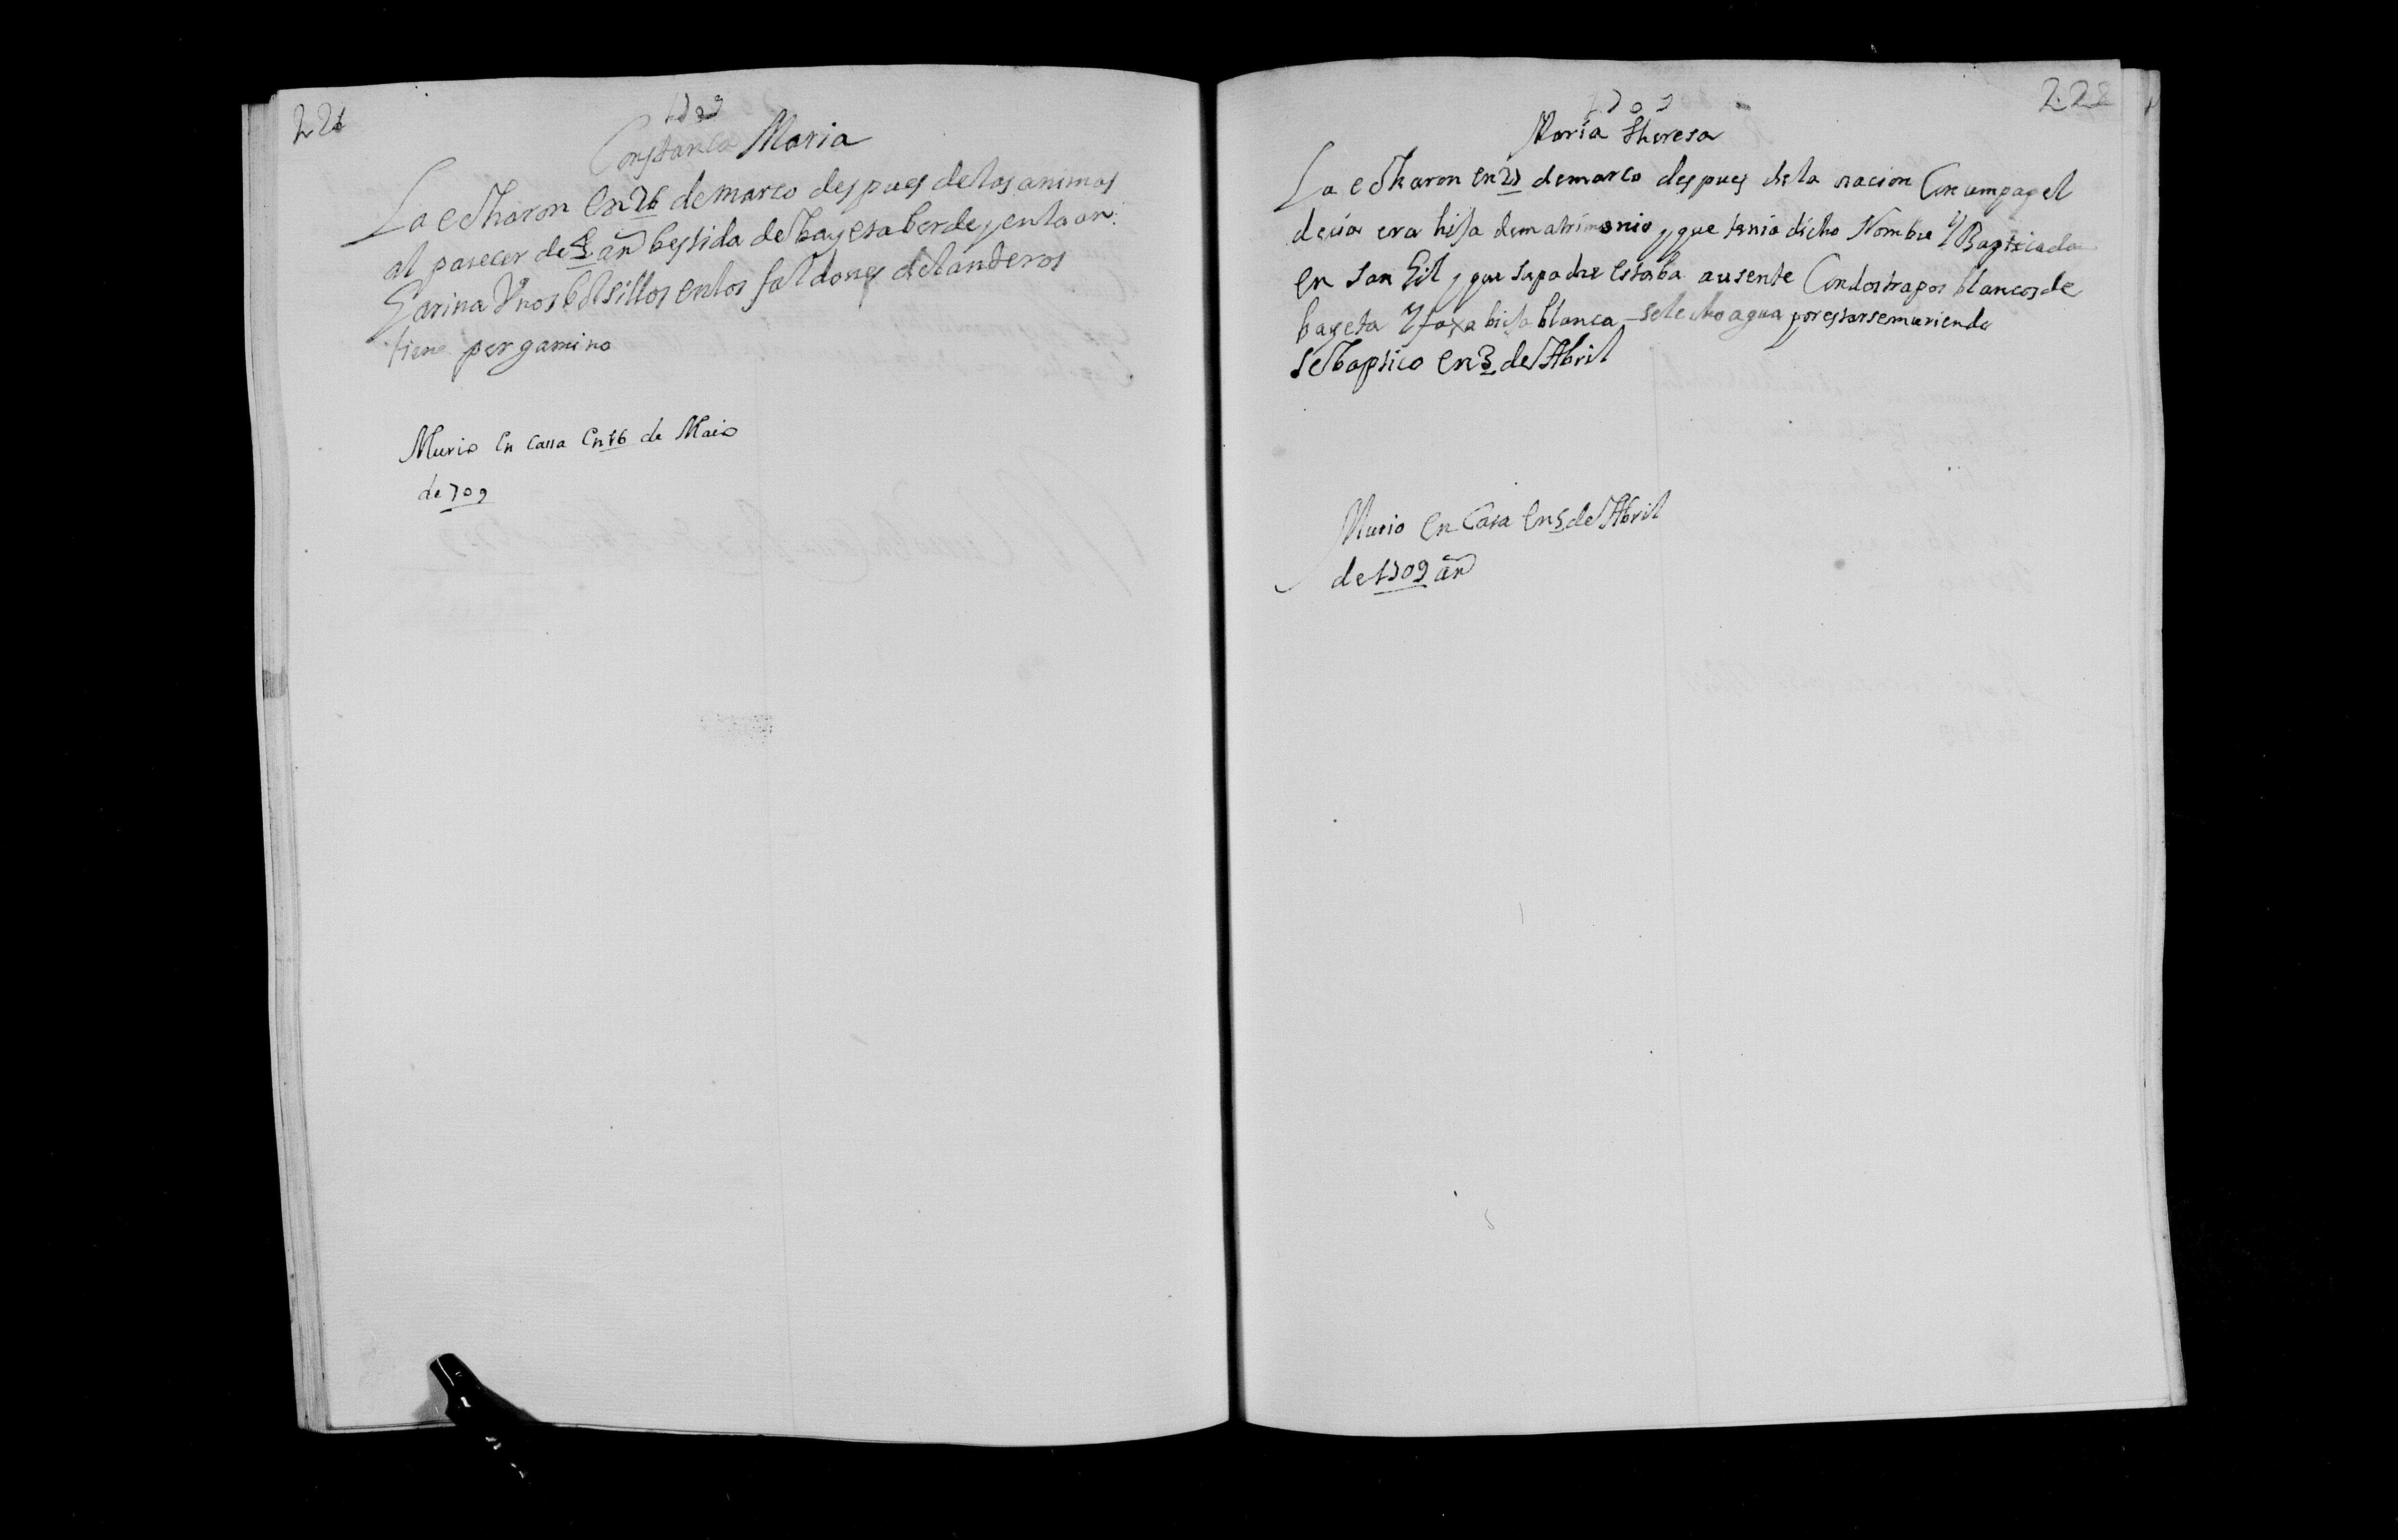 226
1709
Constanca Maria
La echaron en 26 de março despues de las animas
al parecer de 2 añ bestida de bayeta berde, en la an:
garina Vnos bolsillos en los faldones delanteros
tiene pergamino
Murio en cassa en 16 de Maio
de 709
228
1709
Maria Theresa
La echaron en 27 de março despues de la oracion Con un papel
decia era hija de matrimonio, y que tenia dicho Nombre Y Baptiçada
en san Gil, que su padre estaba ausente Con dos trapos blancos de
bayeta Y faxa bieja blanca - se le echo agua por estarse muriendo
se baptiço en 3 de Abril
Murio en Casa en 5 de Abril
de 1709 añ